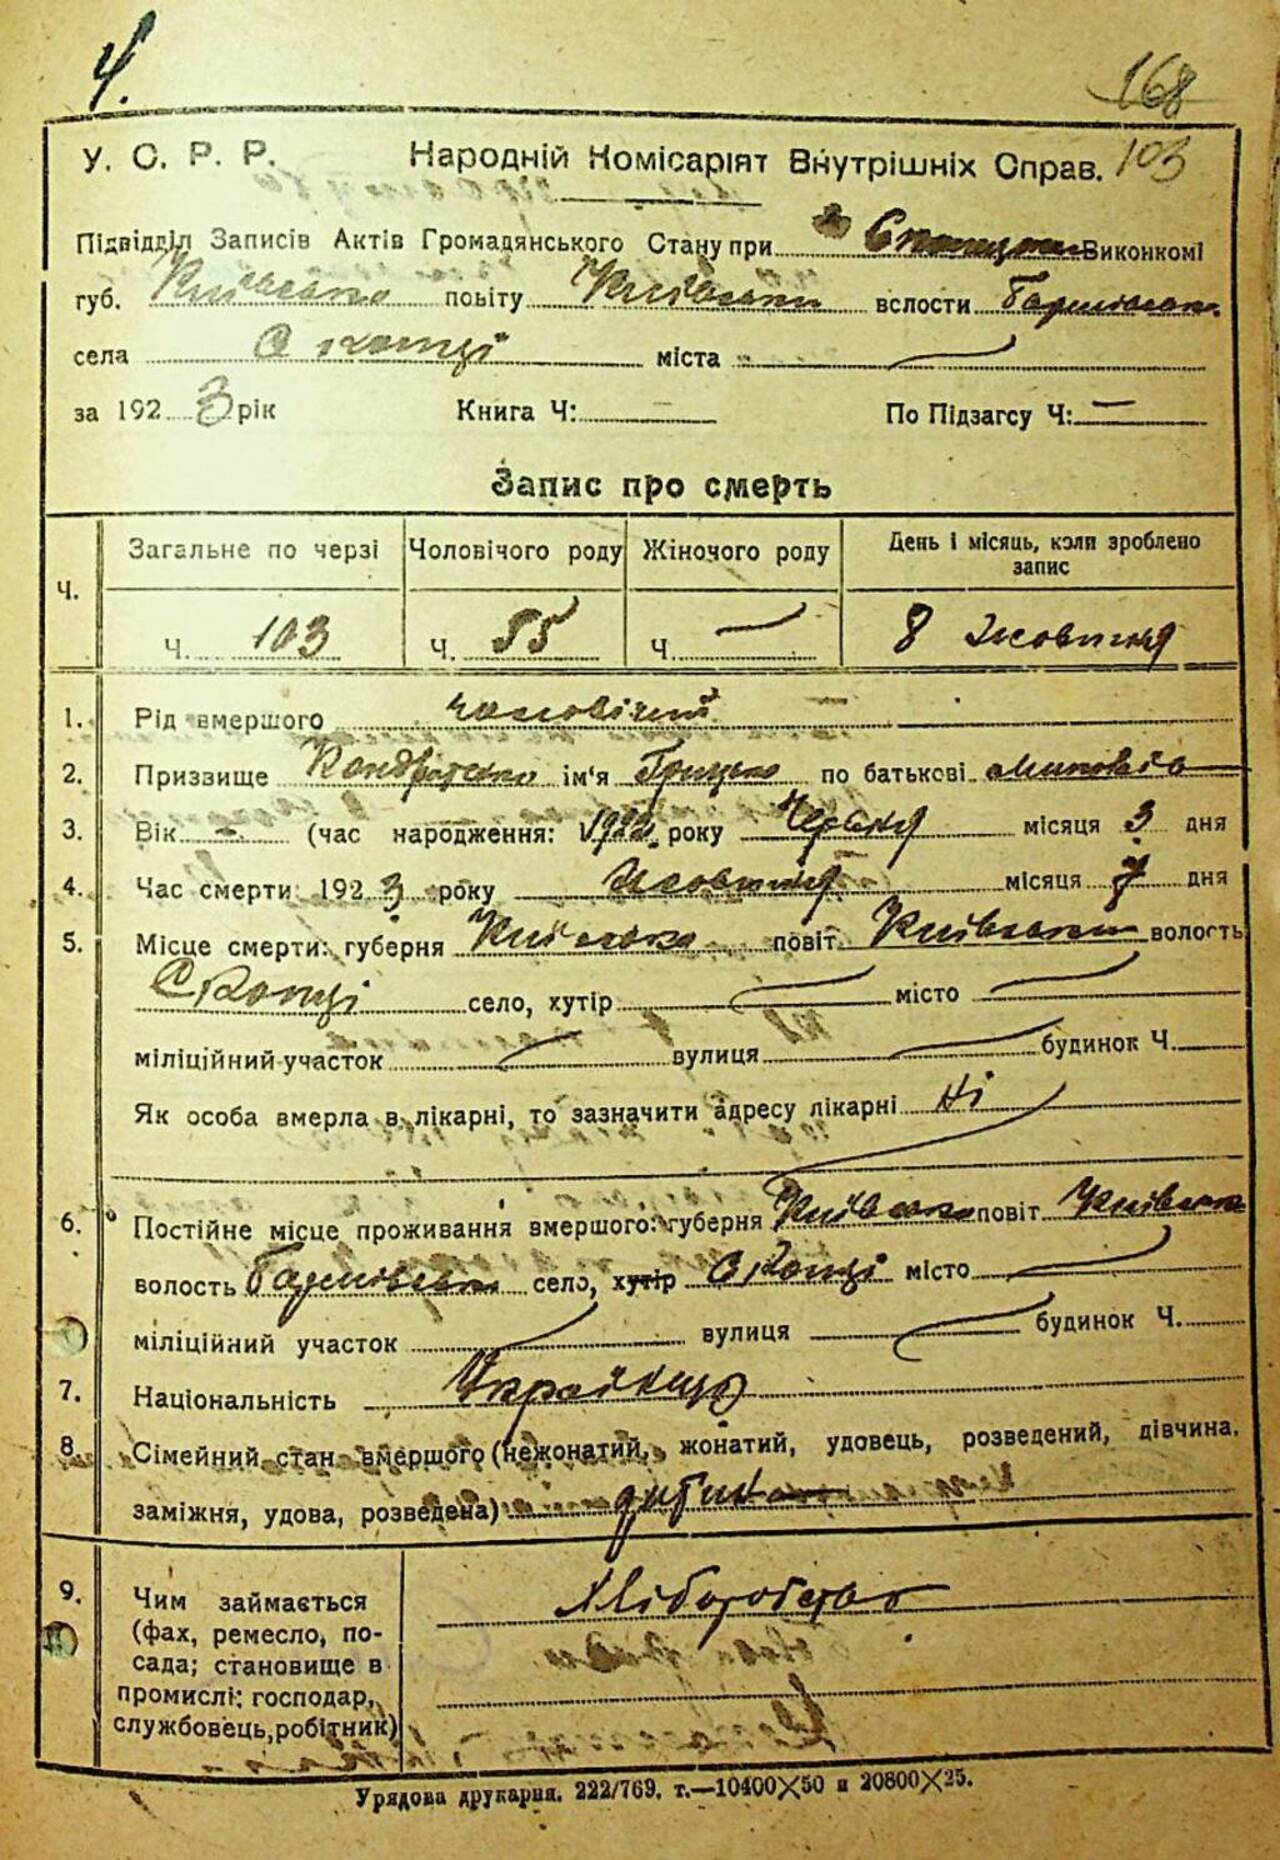 4.
168
У. С. Р. Р. Народній Комісаріят Внутрішніх Справ. 103
Підвідділ Записів Актів Громадянського Стану при Виконкомі
губ. Київська повіту Київськи вслости
села Скопці міста —
за 1923 рік Книга Ч: — По Підзагсу Ч: —
Запис про смерть
Ч. Загальне по черзі Чоловічого роду Жіночого роду День і місяць, коли зроблено запис
Ч. 103 Ч. 55 Ч. — 8 Жовтня
1. Рід вмершого чоловічий
2. Призвище ім'я Грицько по батькові
3. Вік — (час народження: 1922 року Червня місяця 3 дня
4. Час смерти: 1923 року Жовтня місяця 7 дня
5. Місце смерти: губерня Київська повіт Київськи волость
Скопці село, хутір — місто —
міліційний участок — вулиця — будинок Ч.
Як особа вмерла в лікарні, то зазначити адресу лікарні Ні
6. Постійне місце проживання вмершого: губерня Київська повіт Київськ
волость село, хутір Скопці місто —
міліційний участок — вулиця — будинок Ч.
7. Національність Українець
8. Сімейний стан вмершого (нежонатий, жонатий, удовець, розведений, дівчина,
заміжня, удова, розведена) дитина
9. Чим займається Хліборобство
(фах, ремесло, по-
сада; становище в
промислі: господар,
службовець, робітник)
Урядова друкарня. 222/769. т.—10400×50 и 20800×25.